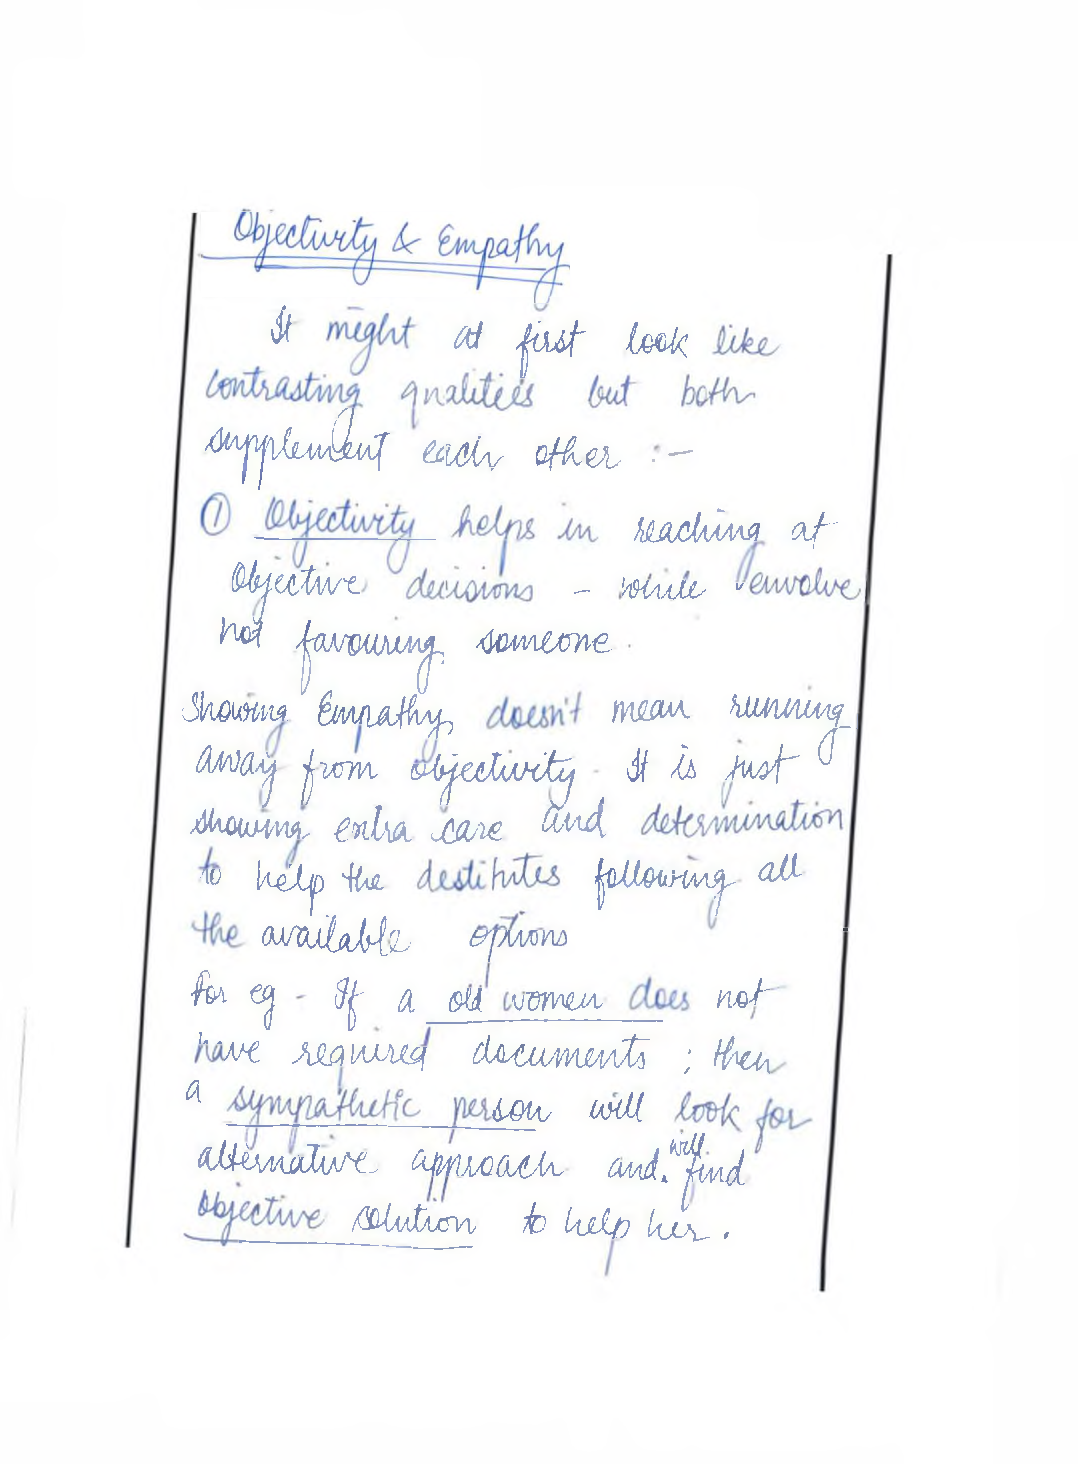 Objectivity & Empathy
It might at first look like
contrasting qualities but both
supplement each other :-
① Objectivity helps in reaching at
Objective decisions - while envolve
not favouring someone.
Showing Empathy doesn't mean running
away from objectivity. It is just
showing extra care and determination
to help the destitutes following all
the available options
For eg - If a old women does not
have required documents ; then
a sympathetic person will look for
alternative approach and will find
objective solution to help her.